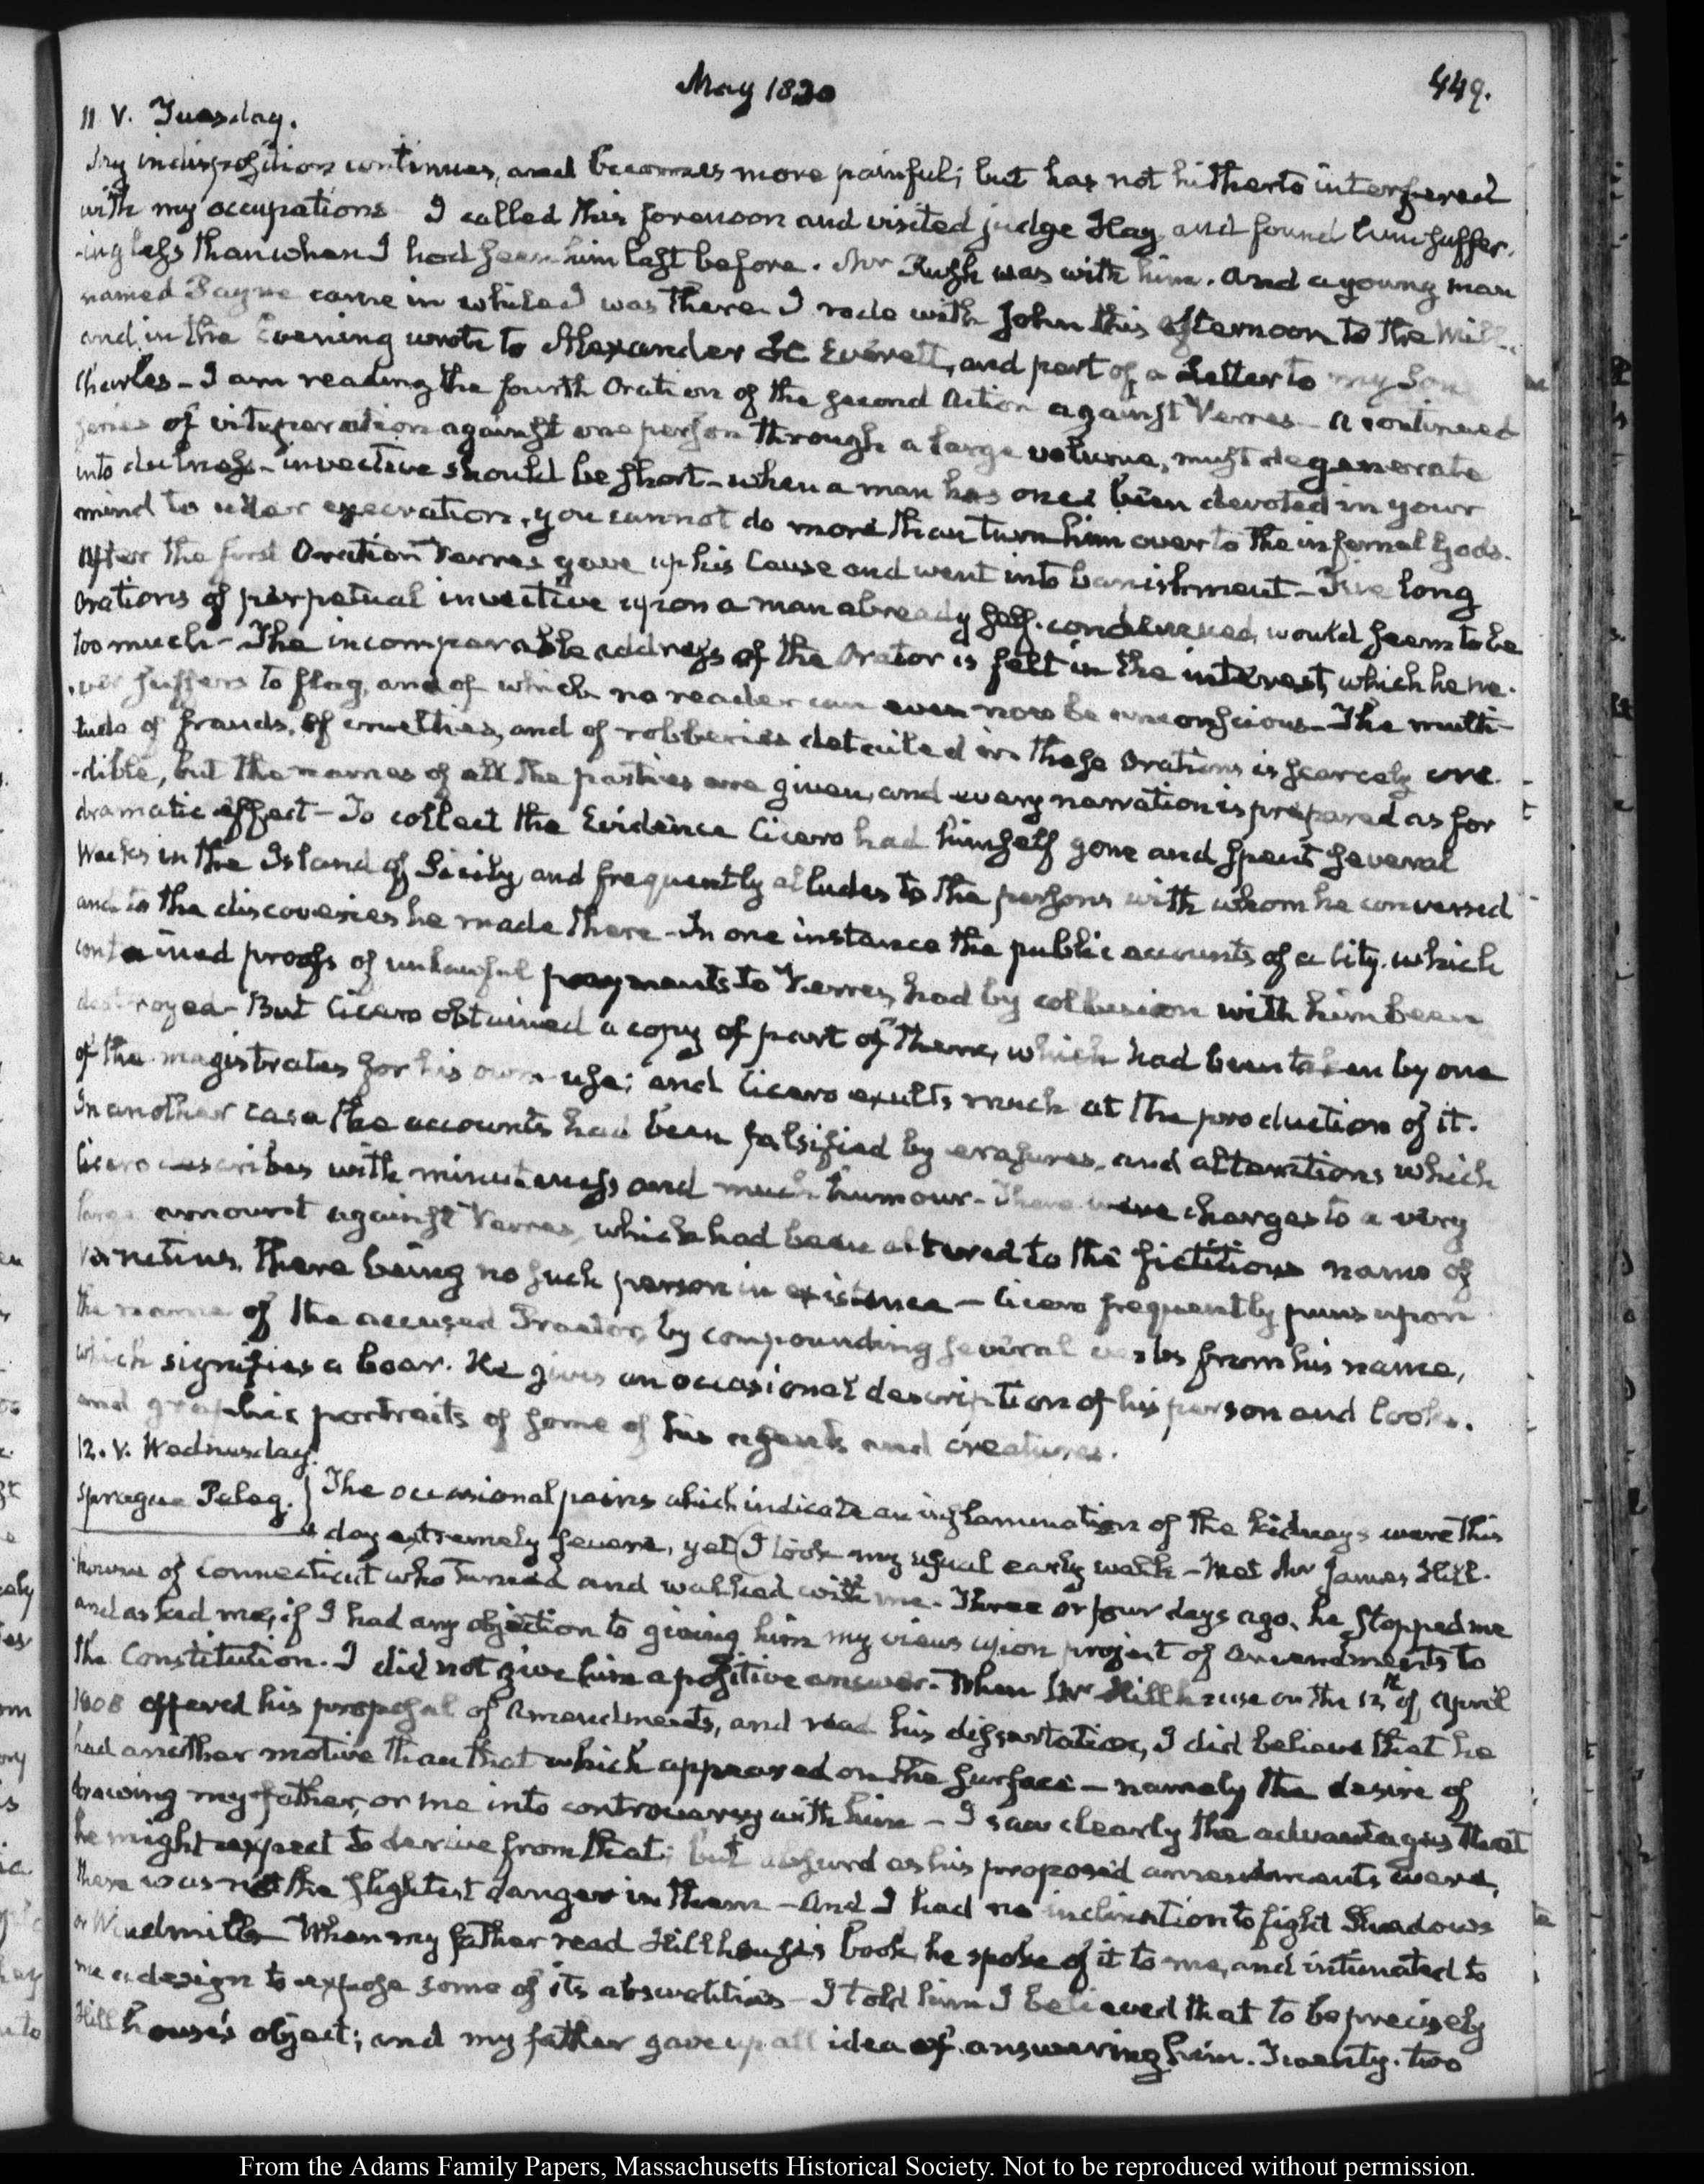 May 1830
449.
11 V. Tuesday.
My indisposition continues, and becomes more painful; but has not hitherto interfered
with my occupations I called this forenoon and visited judge Hay and found him suffer-
-ing less than when I had seen him last before. Mr Rush was with him. and a young man
named Payne came in while I was there. I rode with John this afternoon to the Mill..
and in the Evening wrote to Alexander H. Everett, and part of a Letter to my Son
Charles — I am reading the fourth Oration of the second Action against Verres — A continued
series of vituperation against one person through a large volume, must degenerate
into dulness — invective should be short — when a man has once been devoted in your
mind to utter execration, you cannot do more than turn him over to the infernal Gods.
After the first Oration Verres gave up his Cause and went into banishment — Five long
Orations of perpetual invective upon a man already self-condemned, would seem to be
too much — The incomparable address of the Orator is felt in the interest, which he ne-
-ver suffers to flag, and of which no reader can even now be unconscious — The multi-
tude of frauds, of cruelties, and of robberies detailed in these Orations is scarcely cre-
-dible, but the names of all the parties are given, and every narration is prepared as for
dramatic effect — To collect the Evidence Cicero had himself gone and spent several
Weeks in the Island of Sicily, and frequently alludes to the persons with whom he conversed
and to the discoveries he made there — In one instance the public accounts of a City, which
contained proofs of unlawful payments to Verres, had by collusion with him been
destroyed — But Cicero obtained a copy of part of them, which had been taken by one
of the magistrates for his own use; and Cicero exults much at the production of it.
In another case the accounts had been falsified by erasures, and alterations which
Cicero describes with minuteness and much humour — There were charges to a very
large amount against Verres, which had been altered to the fictitious name of
Verrutius, there being no such person in existence — Cicero frequently puns upon
the name of the accused Praetor, by compounding several verbs from his name,
which signifies a boar. He gives an occasional description of his person and looks.
and graphic portraits of some of his agents and creatures.
12. V. Wednesday.
Sprague Peleg. } The occasional pains which indicate an inflammation of the kidneys were this
day extremely severe, yet I took my usual early walk — Met Mr James Hill-
house of Connecticut who turned and walked with me. Three or four days ago, he stopped me
and asked me, if I had any objection to giving him my views upon project of amendments to
the Constitution. I did not give him a positive answer. When Mr Hillhouse on the 12th of April
1808 offered his proposal of Amendments, and read his dissertation, I did believe that he
had another motive than that which appeared on the surface — namely the desire of
drawing my father, or me into controversy with him — I saw clearly the advantages that
he might expect to derive from that; but absurd as his proposed amendments were,
there was not the slightest danger in them — And I had no inclination to fight Shadows
or Windmills — When my father read Hillhouse's book, he spoke of it to me, and intimated to
me a design to expose some of its absurdities — I told him I believed that to be precisely
Hillhouse's object; and my father gave up all idea of answering him. Twenty-two
From the Adams Family Papers, Massachusetts Historical Society. Not to be reproduced without permission.